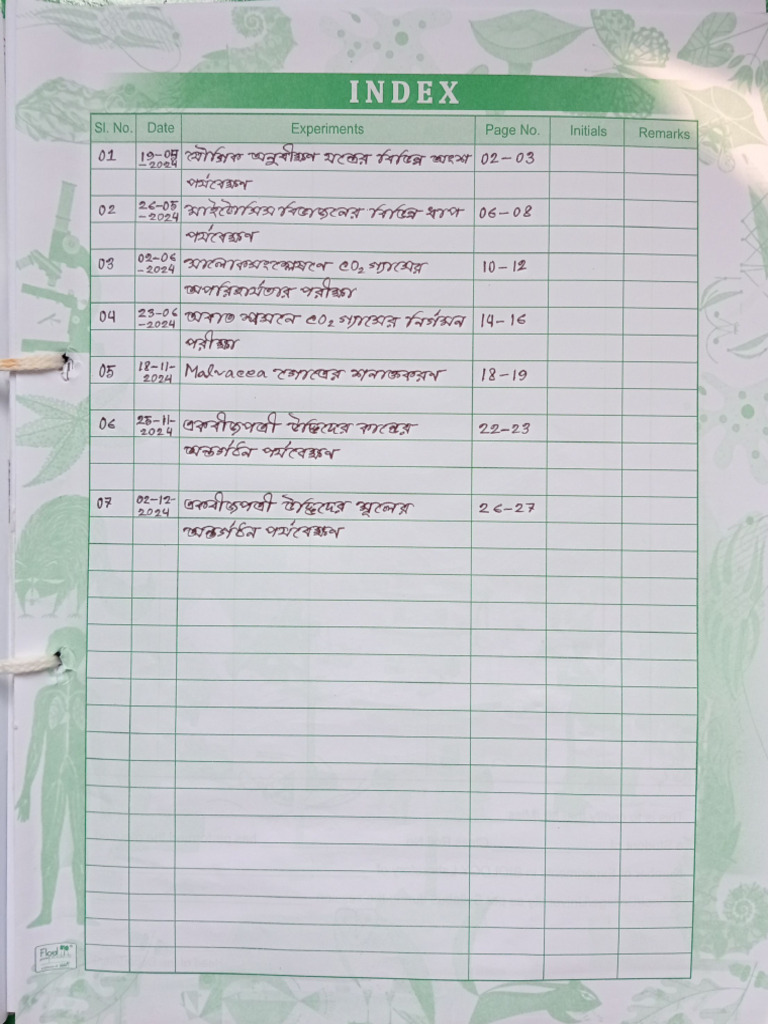 INDEX
Sl. No. Date Experiments Page No. Initials Remarks
01 19-05-2024 যৌগিক অনুবীক্ষণ যন্ত্রের বিভিন্ন অংশ 02-03
পর্যবেক্ষণ
02 26-05-2024 মাইটোসিস বিভাজনের বিভিন্ন ধাপ 06-08
পর্যবেক্ষণ
03 02-06-2024 সালোকসংশ্লেষণে CO₂ গ্যাসের 10-12
অপরিহার্যতার পরীক্ষা
04 23-06-2024 অবাত শ্বসনে CO₂ গ্যাসের নির্গমন 14-16
পরীক্ষা
05 18-11-2024 Malvacea গোত্রের শনাক্তকরণ 18-19
06 25-11-2024 একবীজপত্রী উদ্ভিদের কান্ডের 22-23
অন্তর্গঠন পর্যবেক্ষণ
07 02-12-2024 একবীজপত্রী উদ্ভিদের মূলের 26-27
অন্তর্গঠন পর্যবেক্ষণ